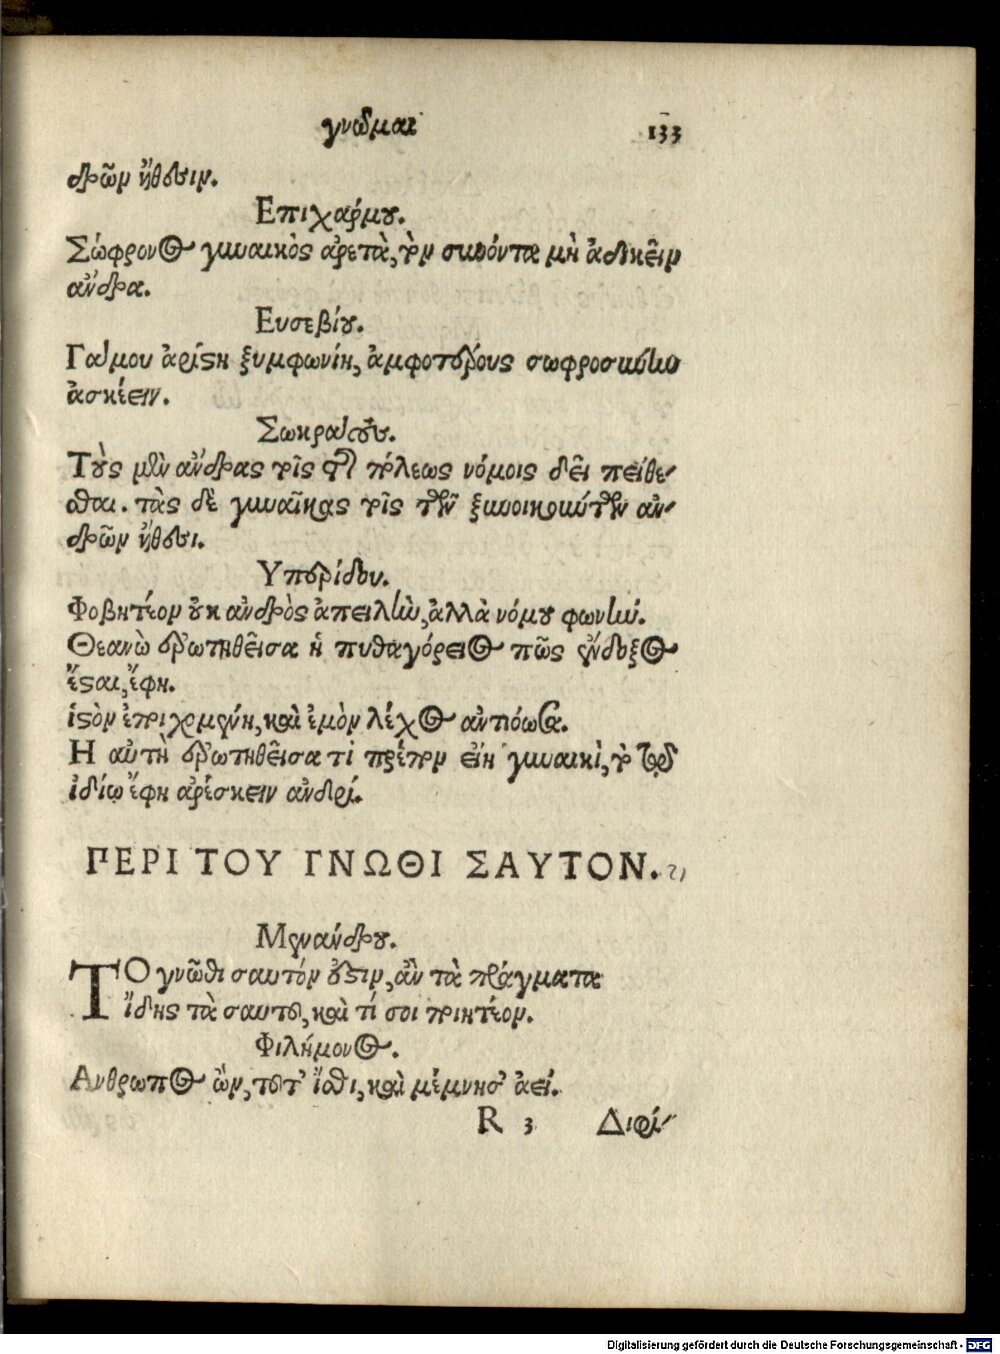 γνῶμαι 133
δρῶν ἤθεσιν.
Επιχάρμου.
Σώφρονος γυναικὸς ἀρετὰ, τὸν συνόντα μὴ ἀδικεῖν
ἄνδρα.
Ευσεβίου.
Γάμου ἀρίστη ξυμφωνίη, ἀμφοτέρους σωφροσύνην
ἀσκέειν.
Σωκράτους.
Τοὺς μὲν ἄνδρας τοῖς τῆς πόλεως νόμοις δεῖ πείθε-
σθαι. τὰς δὲ γυναῖκας τοῖς τῶν ξυνοικούντων ἀν-
δρῶν ἤθεσι.
Υπερίδου.
Φοβητέον οὐκ ἀνδρὸς ἀπειλὴν, ἀλλὰ νόμου φωνήν.
Θεανὼ ἐρωτηθεῖσα ἡ πυθαγόρειος πῶς ἔνδοξος
ἔσται, ἔφη.
ἱστὸν ἐποιχομένη, καὶ ἐμὸν λέχος ἀντιόωσα.
Η αὐτὴ ἐρωτηθεῖσα τί πρέπον εἴη γυναικὶ, τὸ τῷ
ἰδίῳ ἔφη ἀρέσκειν ἀνδρί.
ΠΕΡΙ ΤΟΥ ΓΝΩΘΙ ΣΑΥΤΟΝ.
Μενάνδρου.
ΤΟ γνῶθι σαυτόν ἐστιν, ἂν τὰ πράγματα
ἴδῃς τὰ σαυτοῦ, καὶ τί σοι ποιητέον.
Φιλήμονος.
Ανθρωπος ὢν, τοῦτ' ἴσθι, καὶ μέμνησ' ἀεί.
R 3 Διφί-
Digitalisierung gefördert durch die Deutsche Forschungsgemeinschaft - DFG